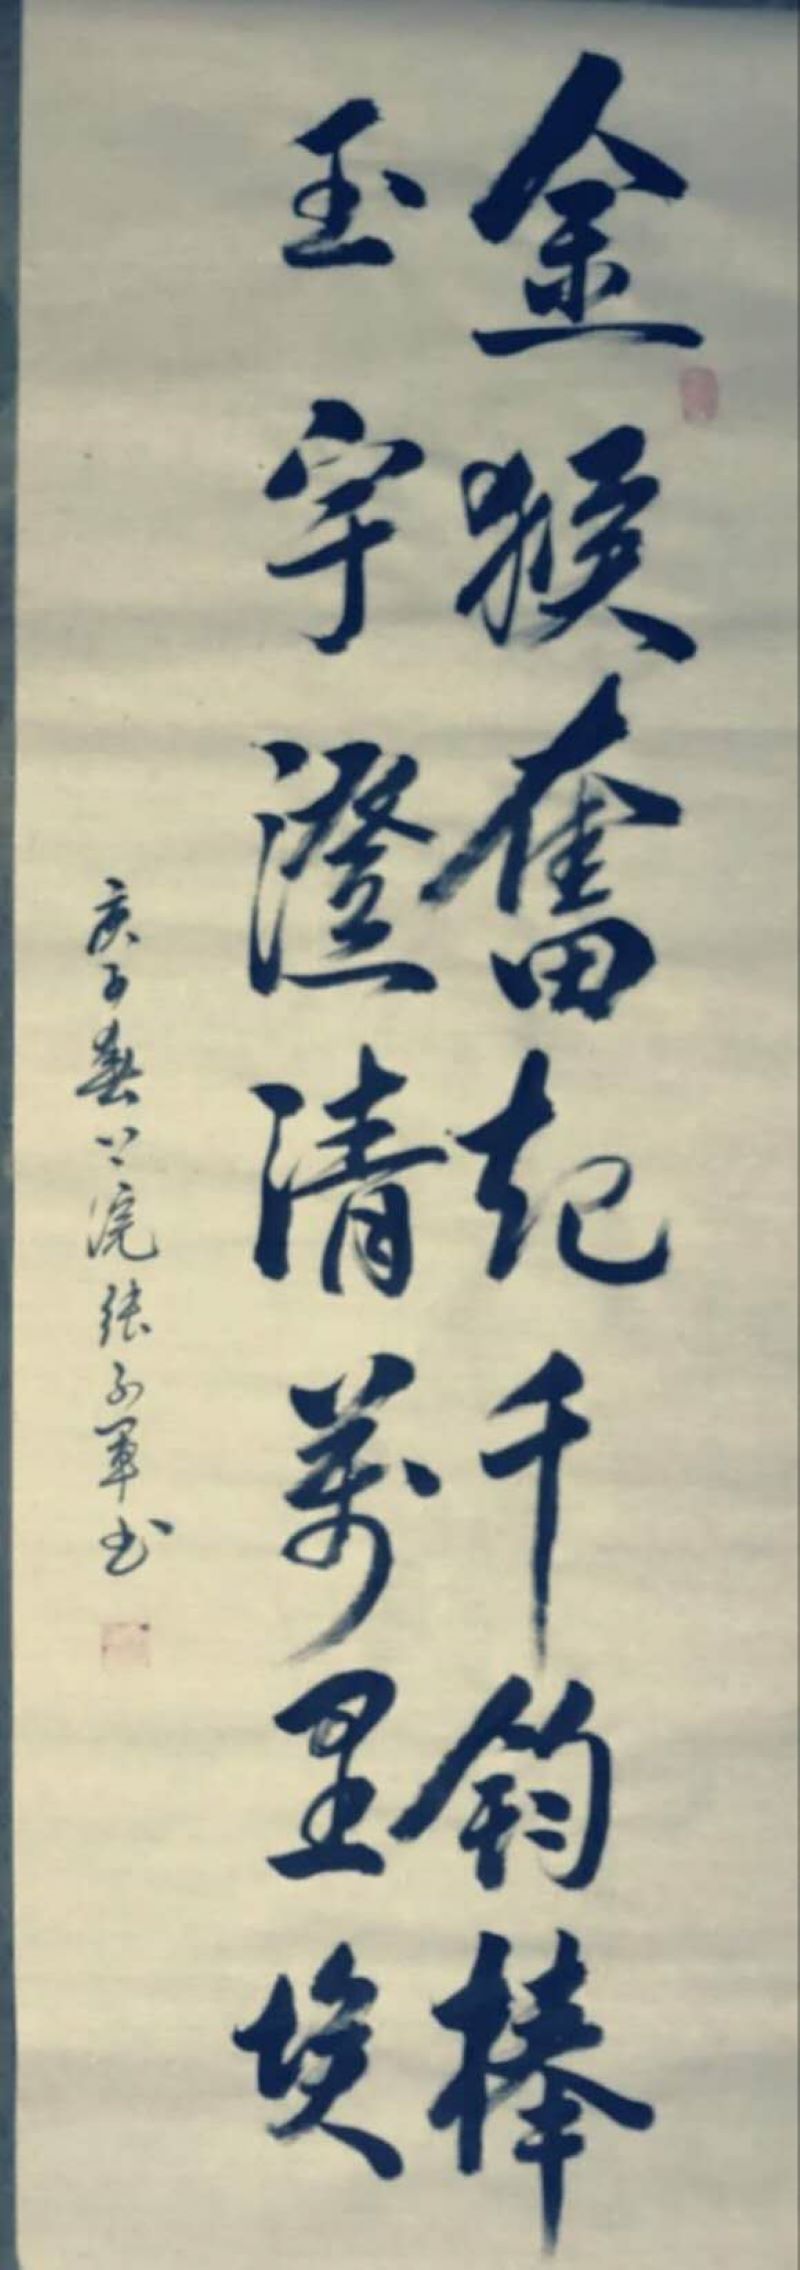 金猴奮起千鈞棒
玉宇澄清萬里埃
庚子春上浣張子軍书